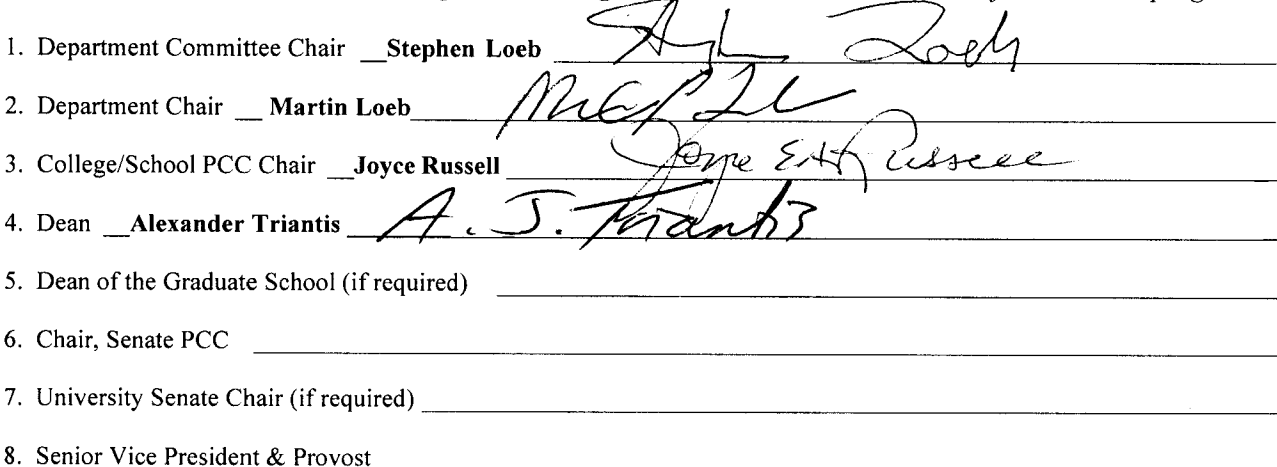 1. Department Committee Chair __Stephen Loeb Loeb
2. Department Chair __ Martin Loeb
3. College/School PCC Chair __Joyce Russell Joyce E.A. Russell
4. Dean __Alexander Triantis A. J. Triantis
5. Dean of the Graduate School (if required)
6. Chair, Senate PCC
7. University Senate Chair (if required)
8. Senior Vice President & Provost